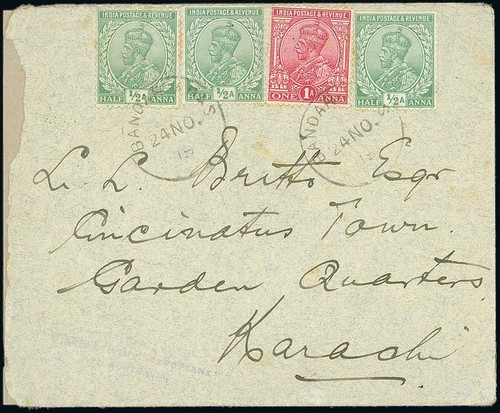 INDIA POSTAGE & REVENUE INDIA POSTAGE & REVENUE INDIA POSTAGE & REVENUE INDIA POSTAGE & REVENUE
HALF ½A ANNA HALF ½A ANNA ONE 1A ANNA HALF ½A ANNA
24 NO. 24 NO.
L. L. Britto Esqr
Cincinatus Town.
Garden Quarters
Karachi